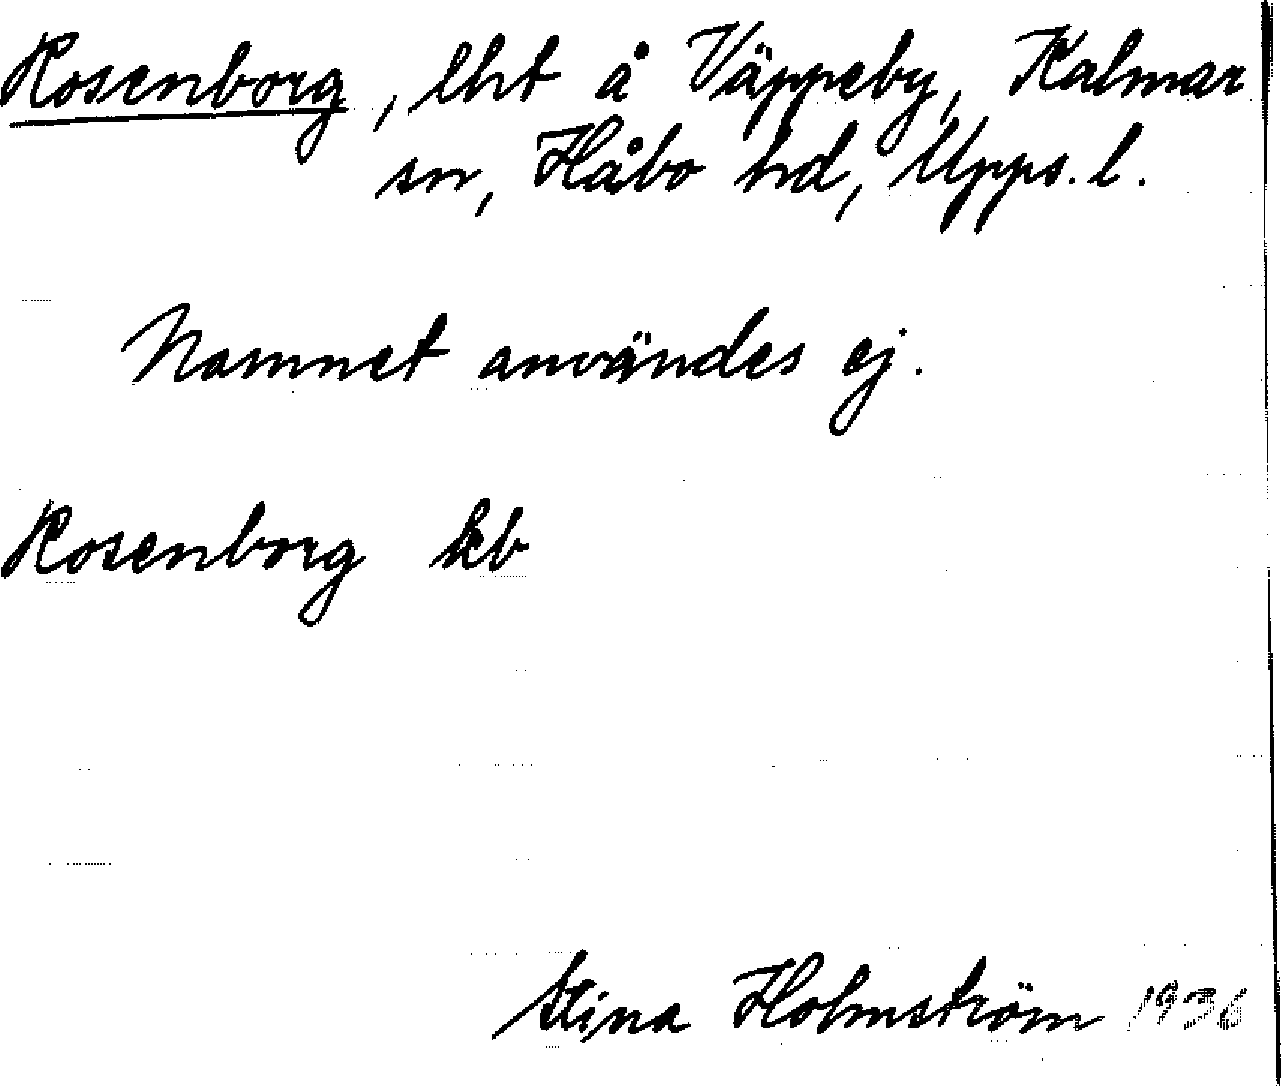 Rosenborg, lht å Väppeby, Kalmar
sn, Håbo hd, Upps. l.
Namnet användes ej.
Rosenborg kb
Stina Holmström 1936